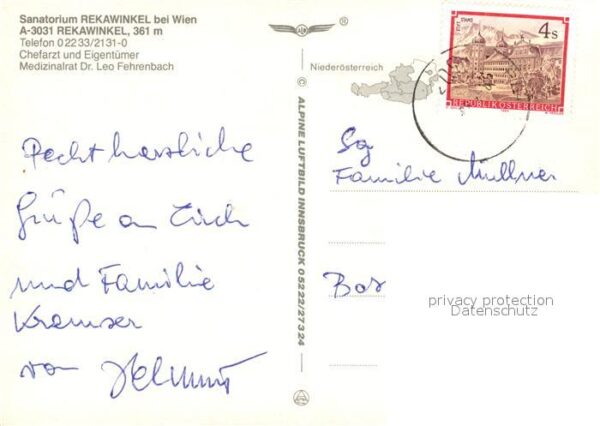 Sanatorium REKAWINKEL bei Wien
A-3031 REKAWINKEL, 361 m
Telefon 0 22 33/2131-0
Chefarzt und Eigentümer
Medizinalrat Dr. Leo Fehrenbach
Recht herzliche
Grüße an Euch
und Familie
Kramser
von Helmut
®
Niederösterreich
© ALPINE LUFTBILD INNSBRUCK 05222/27324
STIFT STAMS
4 S
REPUBLIK ÖSTERREICH
Sg
Familie Müllner
privacy protection
Datenschutz